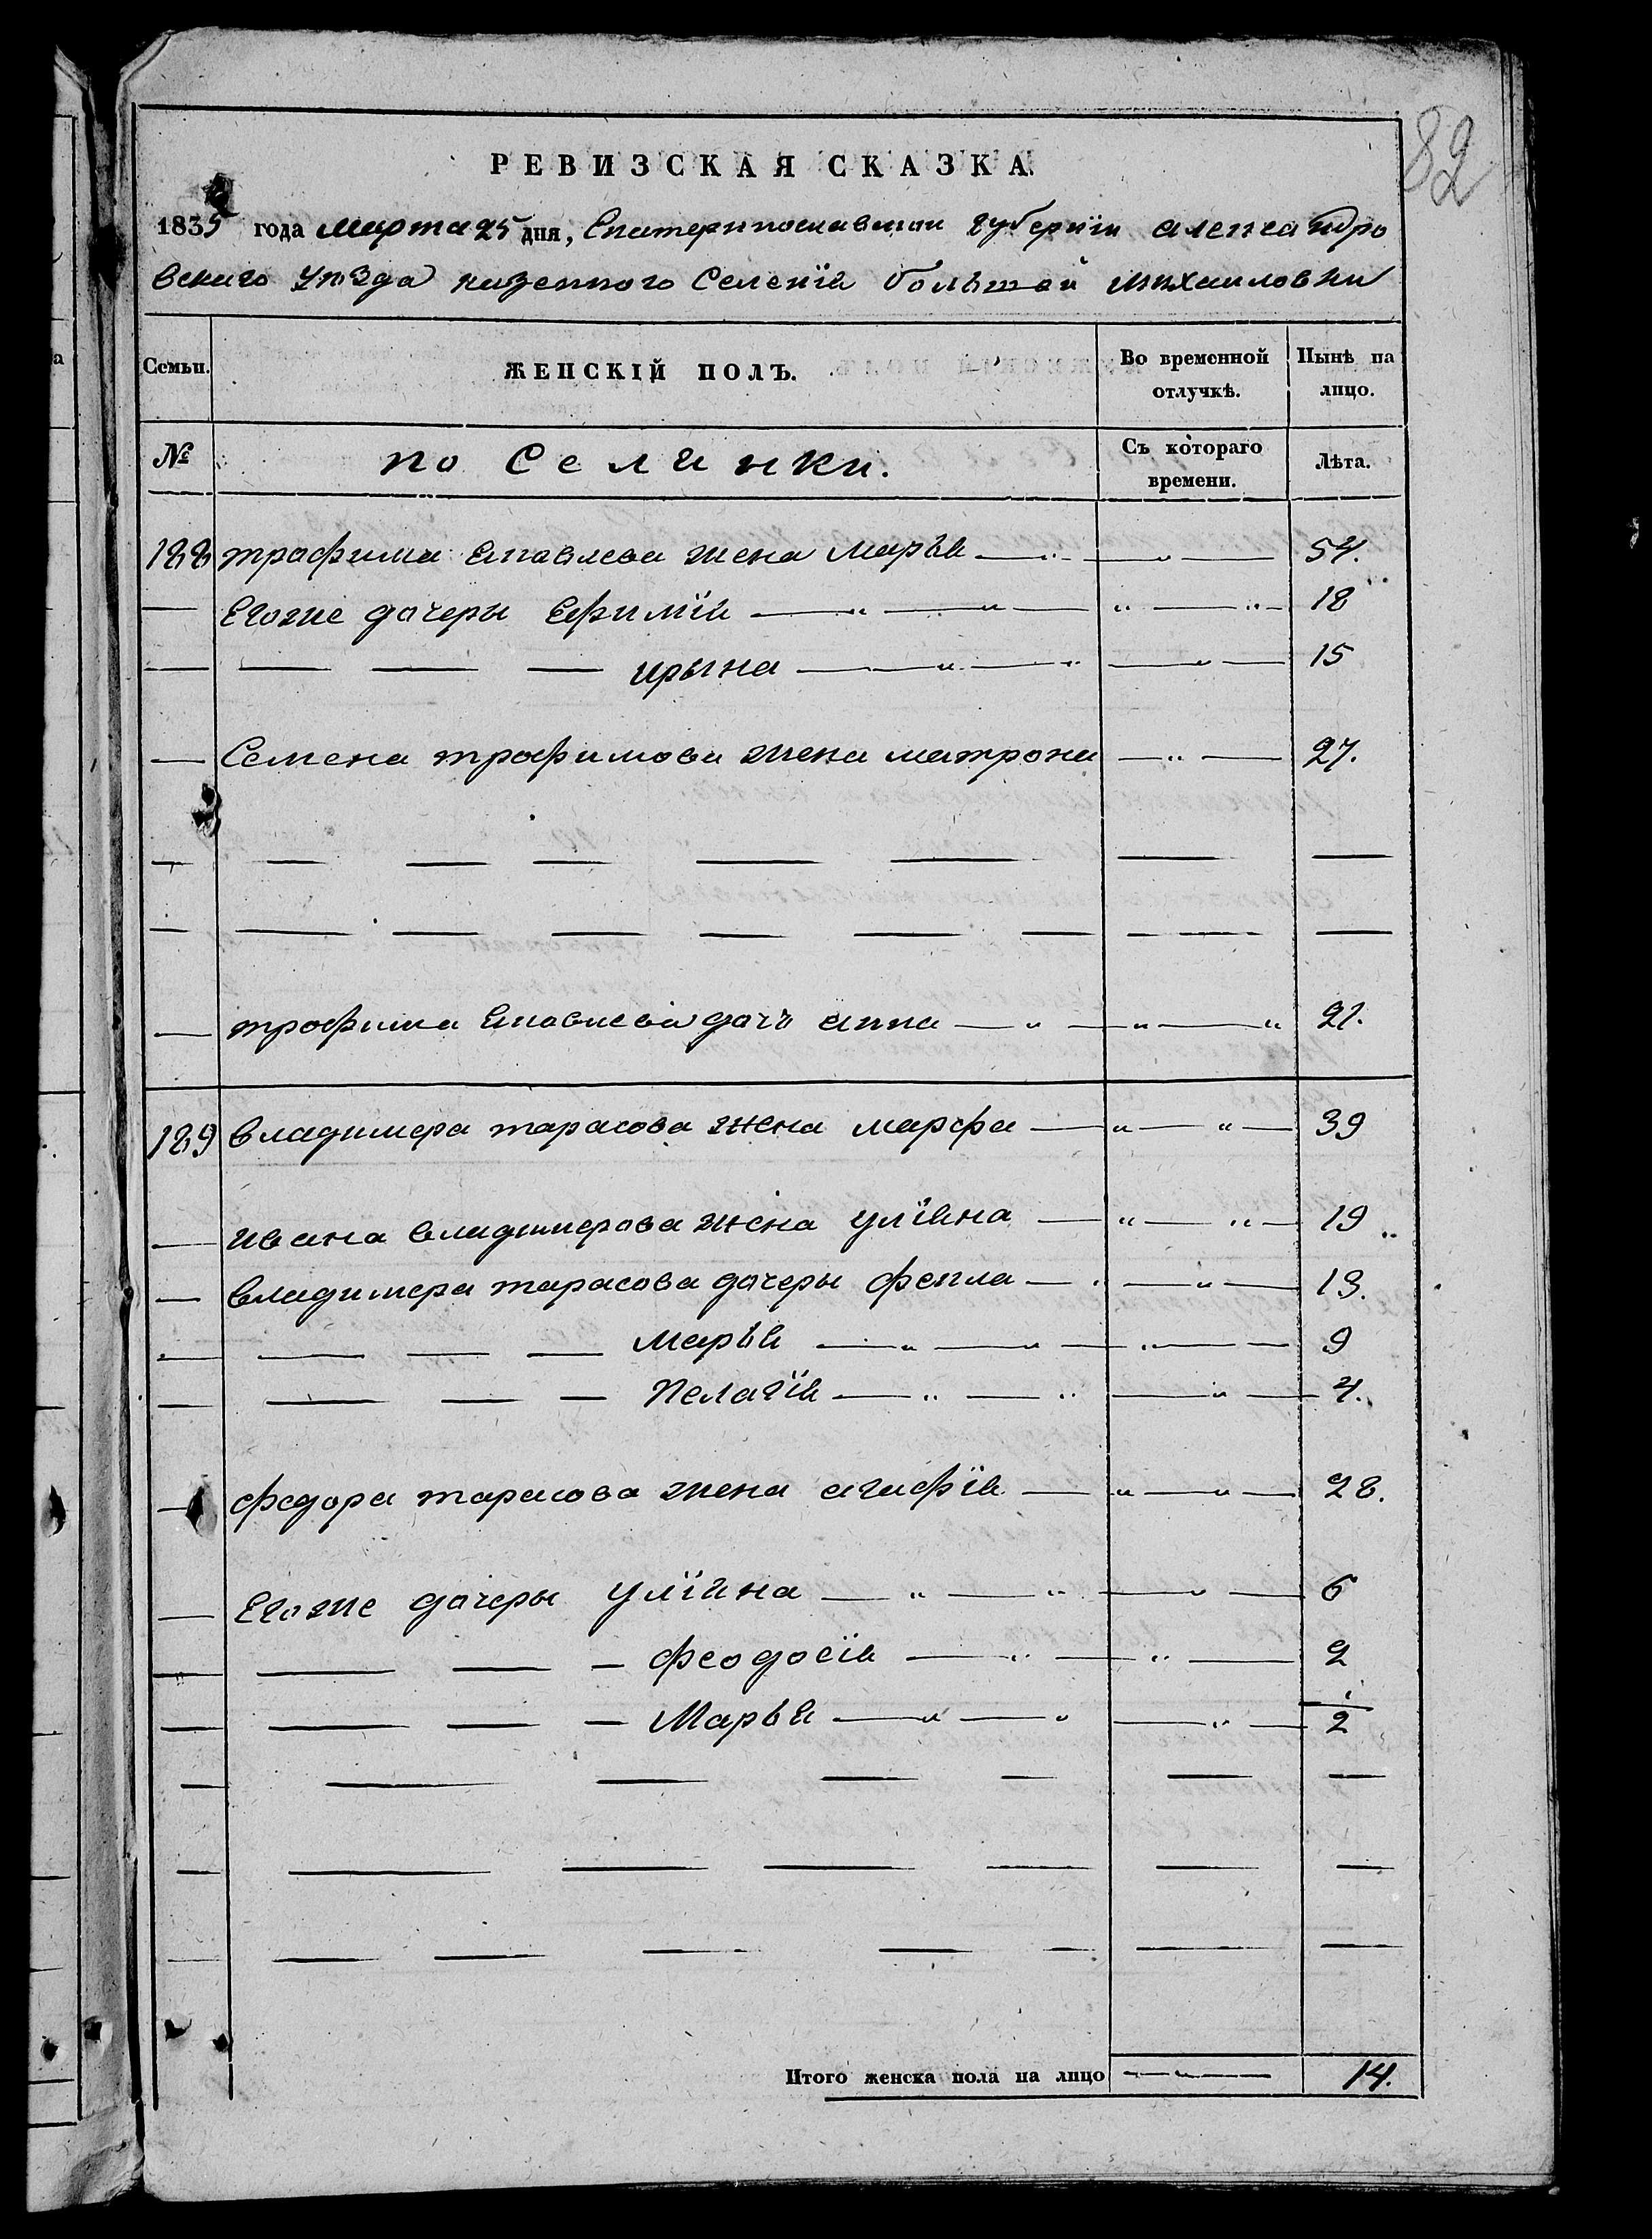 82
РЕВИЗСКАЯ СКАЗКА.
1835 года марта 25 дня, Екатеринославской губернїи александро
вскаго уѣзда казенного Селенїя большой михаиловки
Семьи. ЖЕНСКІЙ ПОЛЪ. Во временной отлучкѣ. Нынѣ на лицо.
№ по Селянки. Съ котораго времени. Лѣта.
188 трофима жена марья — " — " — 54.
— Егоже дочеры Ефимїя — " — " — " — " — 18
— — — — ирына — " — " — " — 15
— Семена трофимова жена матрона — " — 27.
— трофима дочь анна — " — " — " 21.
189 владимера тарасова жена марфа — " — " — 39
— ивана владимерова жена улїяна — " — " — 19
— владимера тарасова дочеры фекла — " — " — 13.
— — — — марья — " — " — " — 9
— — — — пелагїя — " — " — " — 4.
— федора тарасова жена агафїя — " — " — 28.
— Егоже дочеры улїяна — " — " — " — 6
— — — — феодосїя — " — " — 2
— — — — Марья — " — " — " — 1/2
Итого женска пола на лицо — " — 14.